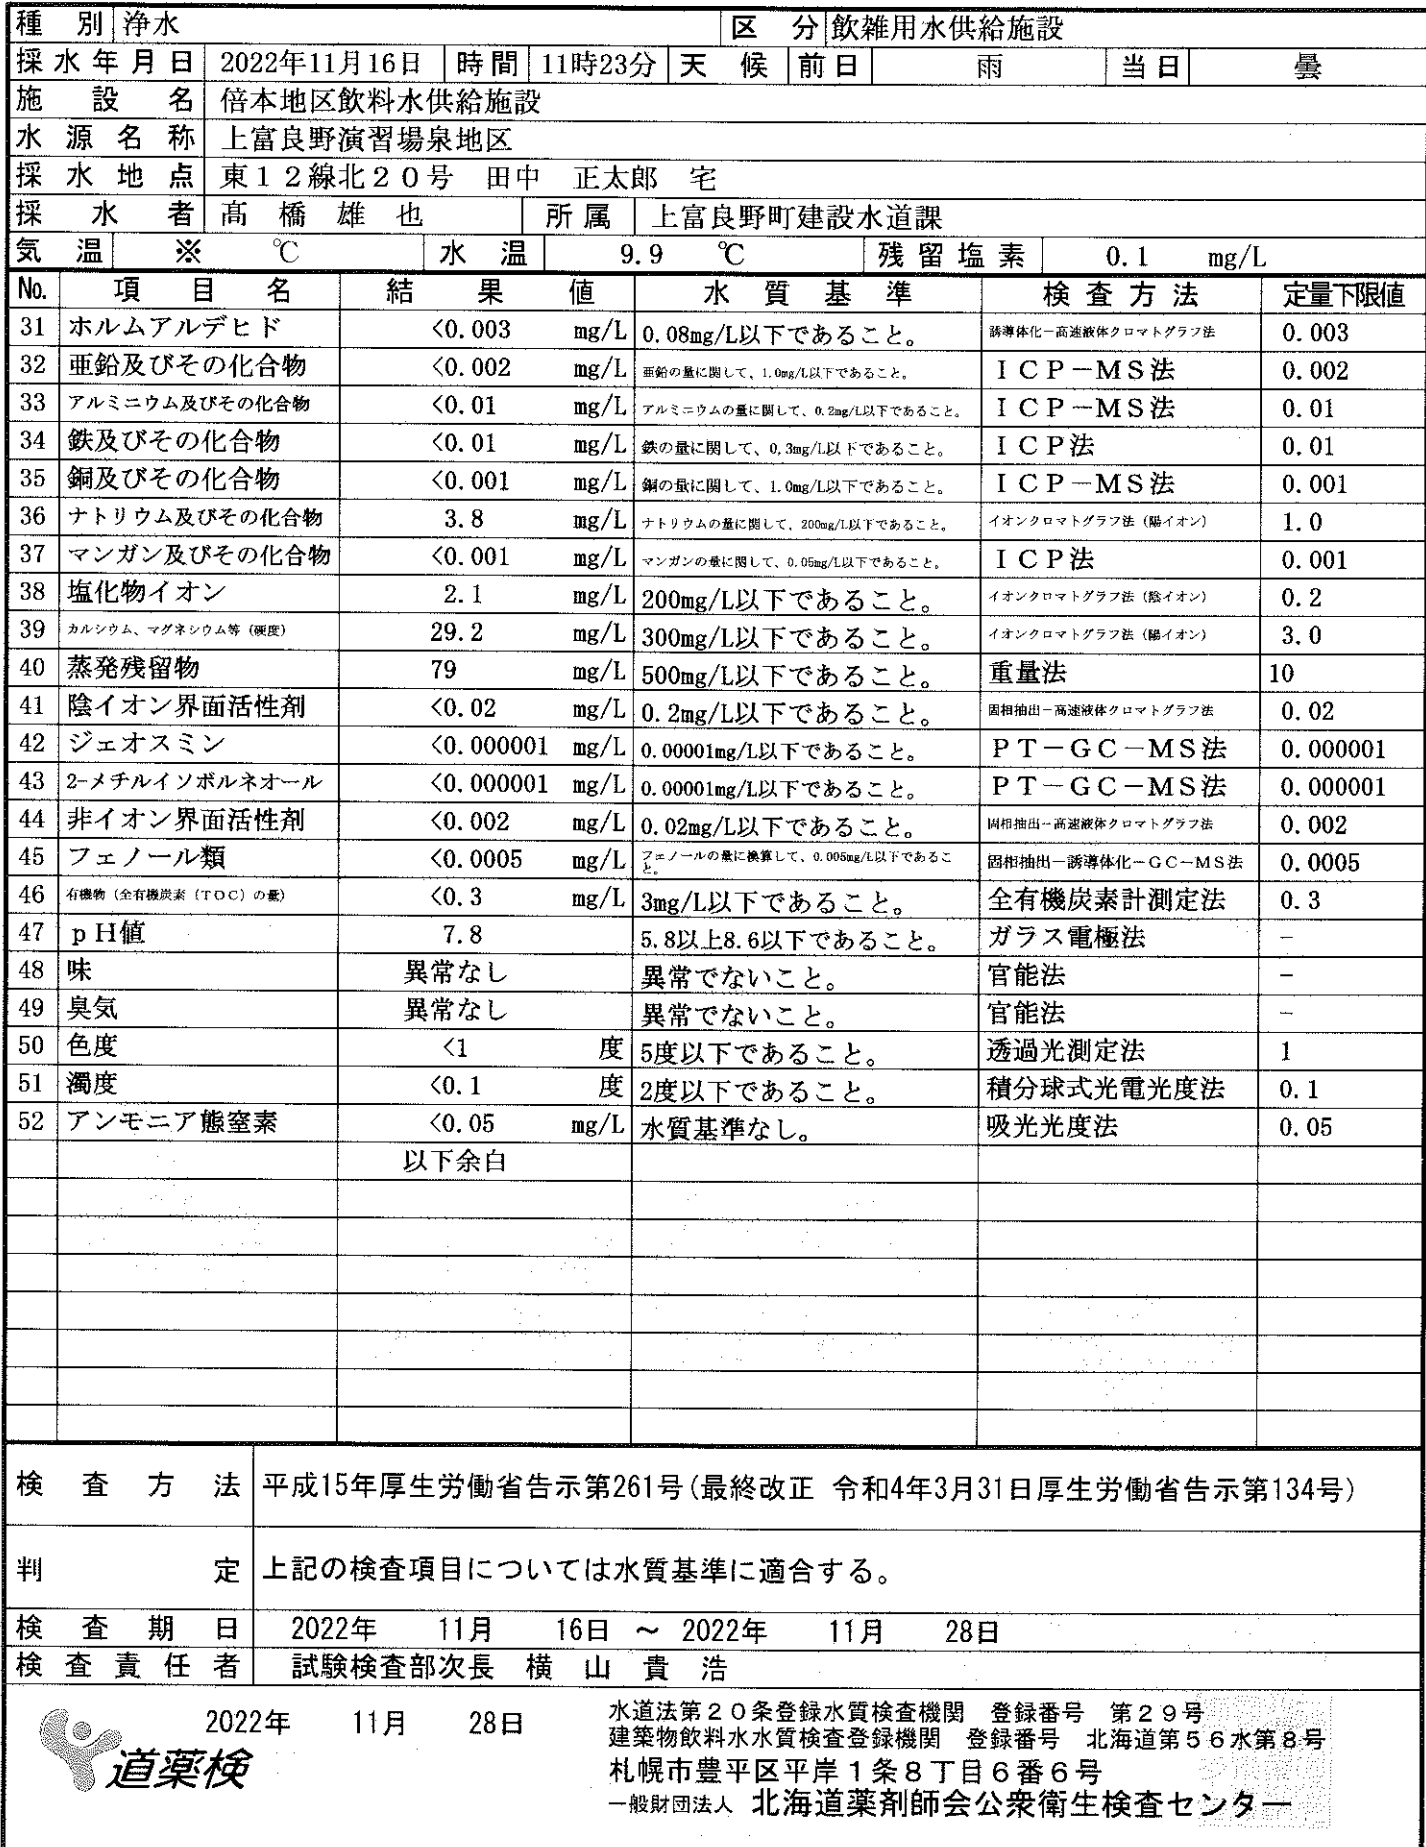 種別 浄水 区分 飲雑用水供給施設
採水年月日 2022年11月16日 時間 11時23分 天候 前日 雨 当日 曇
施設名 倍本地区飲料水供給施設
水源名称 上富良野演習場泉地区
採水地点 東12線北20号 田中 正太郎 宅
採水者 髙橋雄也 所属 上富良野町建設水道課
気温 ※ ℃ 水温 9.9 ℃ 残留塩素 0.1 mg/L
No. 項目名 結果値 水質基準 検査方法 定量下限値
31 ホルムアルデヒド <0.003 mg/L 0.08mg/L以下であること。 誘導体化-高速液体クロマトグラフ法 0.003
32 亜鉛及びその化合物 <0.002 mg/L 亜鉛の量に関して、1.0mg/L以下であること。 ICP-MS法 0.002
33 アルミニウム及びその化合物 <0.01 mg/L アルミニウムの量に関して、0.2mg/L以下であること。 ICP-MS法 0.01
34 鉄及びその化合物 <0.01 mg/L 鉄の量に関して、0.3mg/L以下であること。 ICP法 0.01
35 銅及びその化合物 <0.001 mg/L 銅の量に関して、1.0mg/L以下であること。 ICP-MS法 0.001
36 ナトリウム及びその化合物 3.8 mg/L ナトリウムの量に関して、200mg/L以下であること。 イオンクロマトグラフ法（陽イオン） 1.0
37 マンガン及びその化合物 <0.001 mg/L マンガンの量に関して、0.05mg/L以下であること。 ICP法 0.001
38 塩化物イオン 2.1 mg/L 200mg/L以下であること。 イオンクロマトグラフ法（陰イオン） 0.2
39 カルシウム、マグネシウム等（硬度） 29.2 mg/L 300mg/L以下であること。 イオンクロマトグラフ法（陽イオン） 3.0
40 蒸発残留物 79 mg/L 500mg/L以下であること。 重量法 10
41 陰イオン界面活性剤 <0.02 mg/L 0.2mg/L以下であること。 固相抽出-高速液体クロマトグラフ法 0.02
42 ジェオスミン <0.000001 mg/L 0.00001mg/L以下であること。 PT-GC-MS法 0.000001
43 2-メチルイソボルネオール <0.000001 mg/L 0.00001mg/L以下であること。 PT-GC-MS法 0.000001
44 非イオン界面活性剤 <0.002 mg/L 0.02mg/L以下であること。 固相抽出-高速液体クロマトグラフ法 0.002
45 フェノール類 <0.0005 mg/L フェノールの量に換算して、0.005mg/L以下であること。 固相抽出-誘導体化-GC-MS法 0.0005
46 有機物（全有機炭素（TOC）の量） <0.3 mg/L 3mg/L以下であること。 全有機炭素計測定法 0.3
47 pH値 7.8 5.8以上8.6以下であること。 ガラス電極法 -
48 味 異常なし 異常でないこと。 官能法 -
49 臭気 異常なし 異常でないこと。 官能法 -
50 色度 <1 度 5度以下であること。 透過光測定法 1
51 濁度 <0.1 度 2度以下であること。 積分球式光電光度法 0.1
52 アンモニア態窒素 <0.05 mg/L 水質基準なし。 吸光光度法 0.05
以下余白
検査方法 平成15年厚生労働省告示第261号(最終改正 令和4年3月31日厚生労働省告示第134号)
判定 上記の検査項目については水質基準に適合する。
検査期日 2022年 11月 16日 ～ 2022年 11月 28日
検査責任者 試験検査部次長 横山貴浩
2022年 11月 28日
道薬検
水道法第20条登録水質検査機関 登録番号 第29号
建築物飲料水水質検査登録機関 登録番号 北海道第56水第8号
札幌市豊平区平岸1条8丁目6番6号
一般財団法人 北海道薬剤師会公衆衛生検査センター